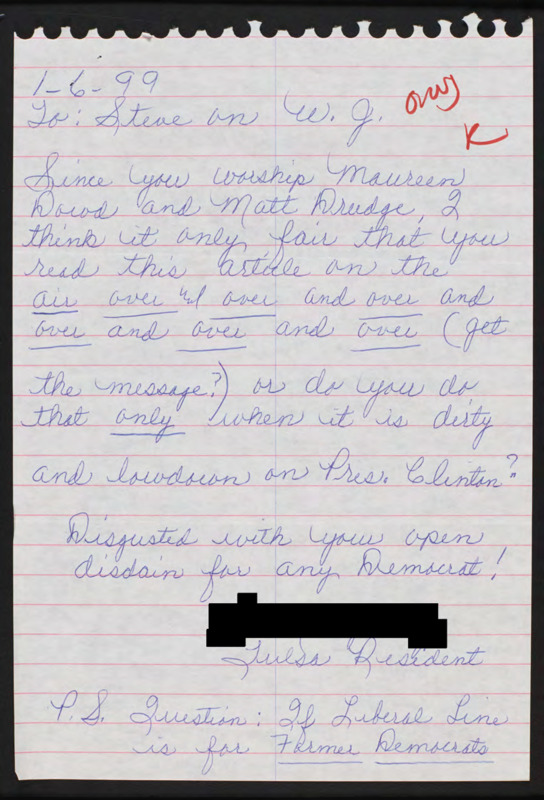 1-6-99
To: Steve on W. J.
Since you worship Maureen
Dowd and Matt Drudge, I
think it only fair that you
read this article on the
air over & over and over and
over and over and over (get
the message?) or do you do
that only when it is dirty
and lowdown on Pres. Clinton?
Disgusted with your open
disdain for any Democrat!
Tulsa Resident
P.S. Question: If Liberal Line
is for Former Democrats